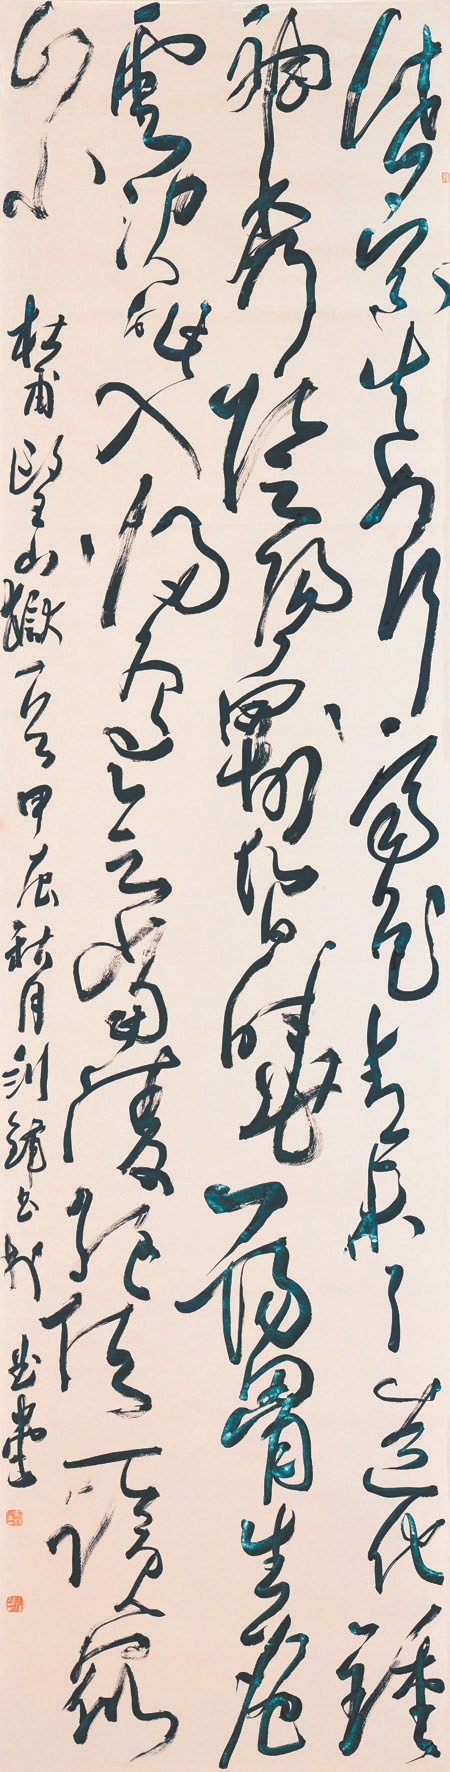 岱宗夫如何齊魯青未了造化鍾
神秀陰陽割昏曉蕩胸生層
雲決眥入歸鳥會當凌絕頂一覽眾
山小
杜甫望嶽一首甲辰秋月